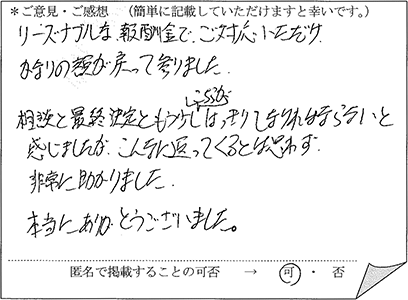 ＊ご意見・ご感想　（簡単に記載していただけますと幸いです。）
リーズナブルな報酬金で、ご対応いただけ、
かなりの額が戻って参りました。
こちらが
相談と最終決定とも はっきりしなければならないと
感じましたが、こんなに返ってくるとは思わず、
非常に助かりました。
本当にありがとうございました。
匿名で掲載することの可否　→　可・否